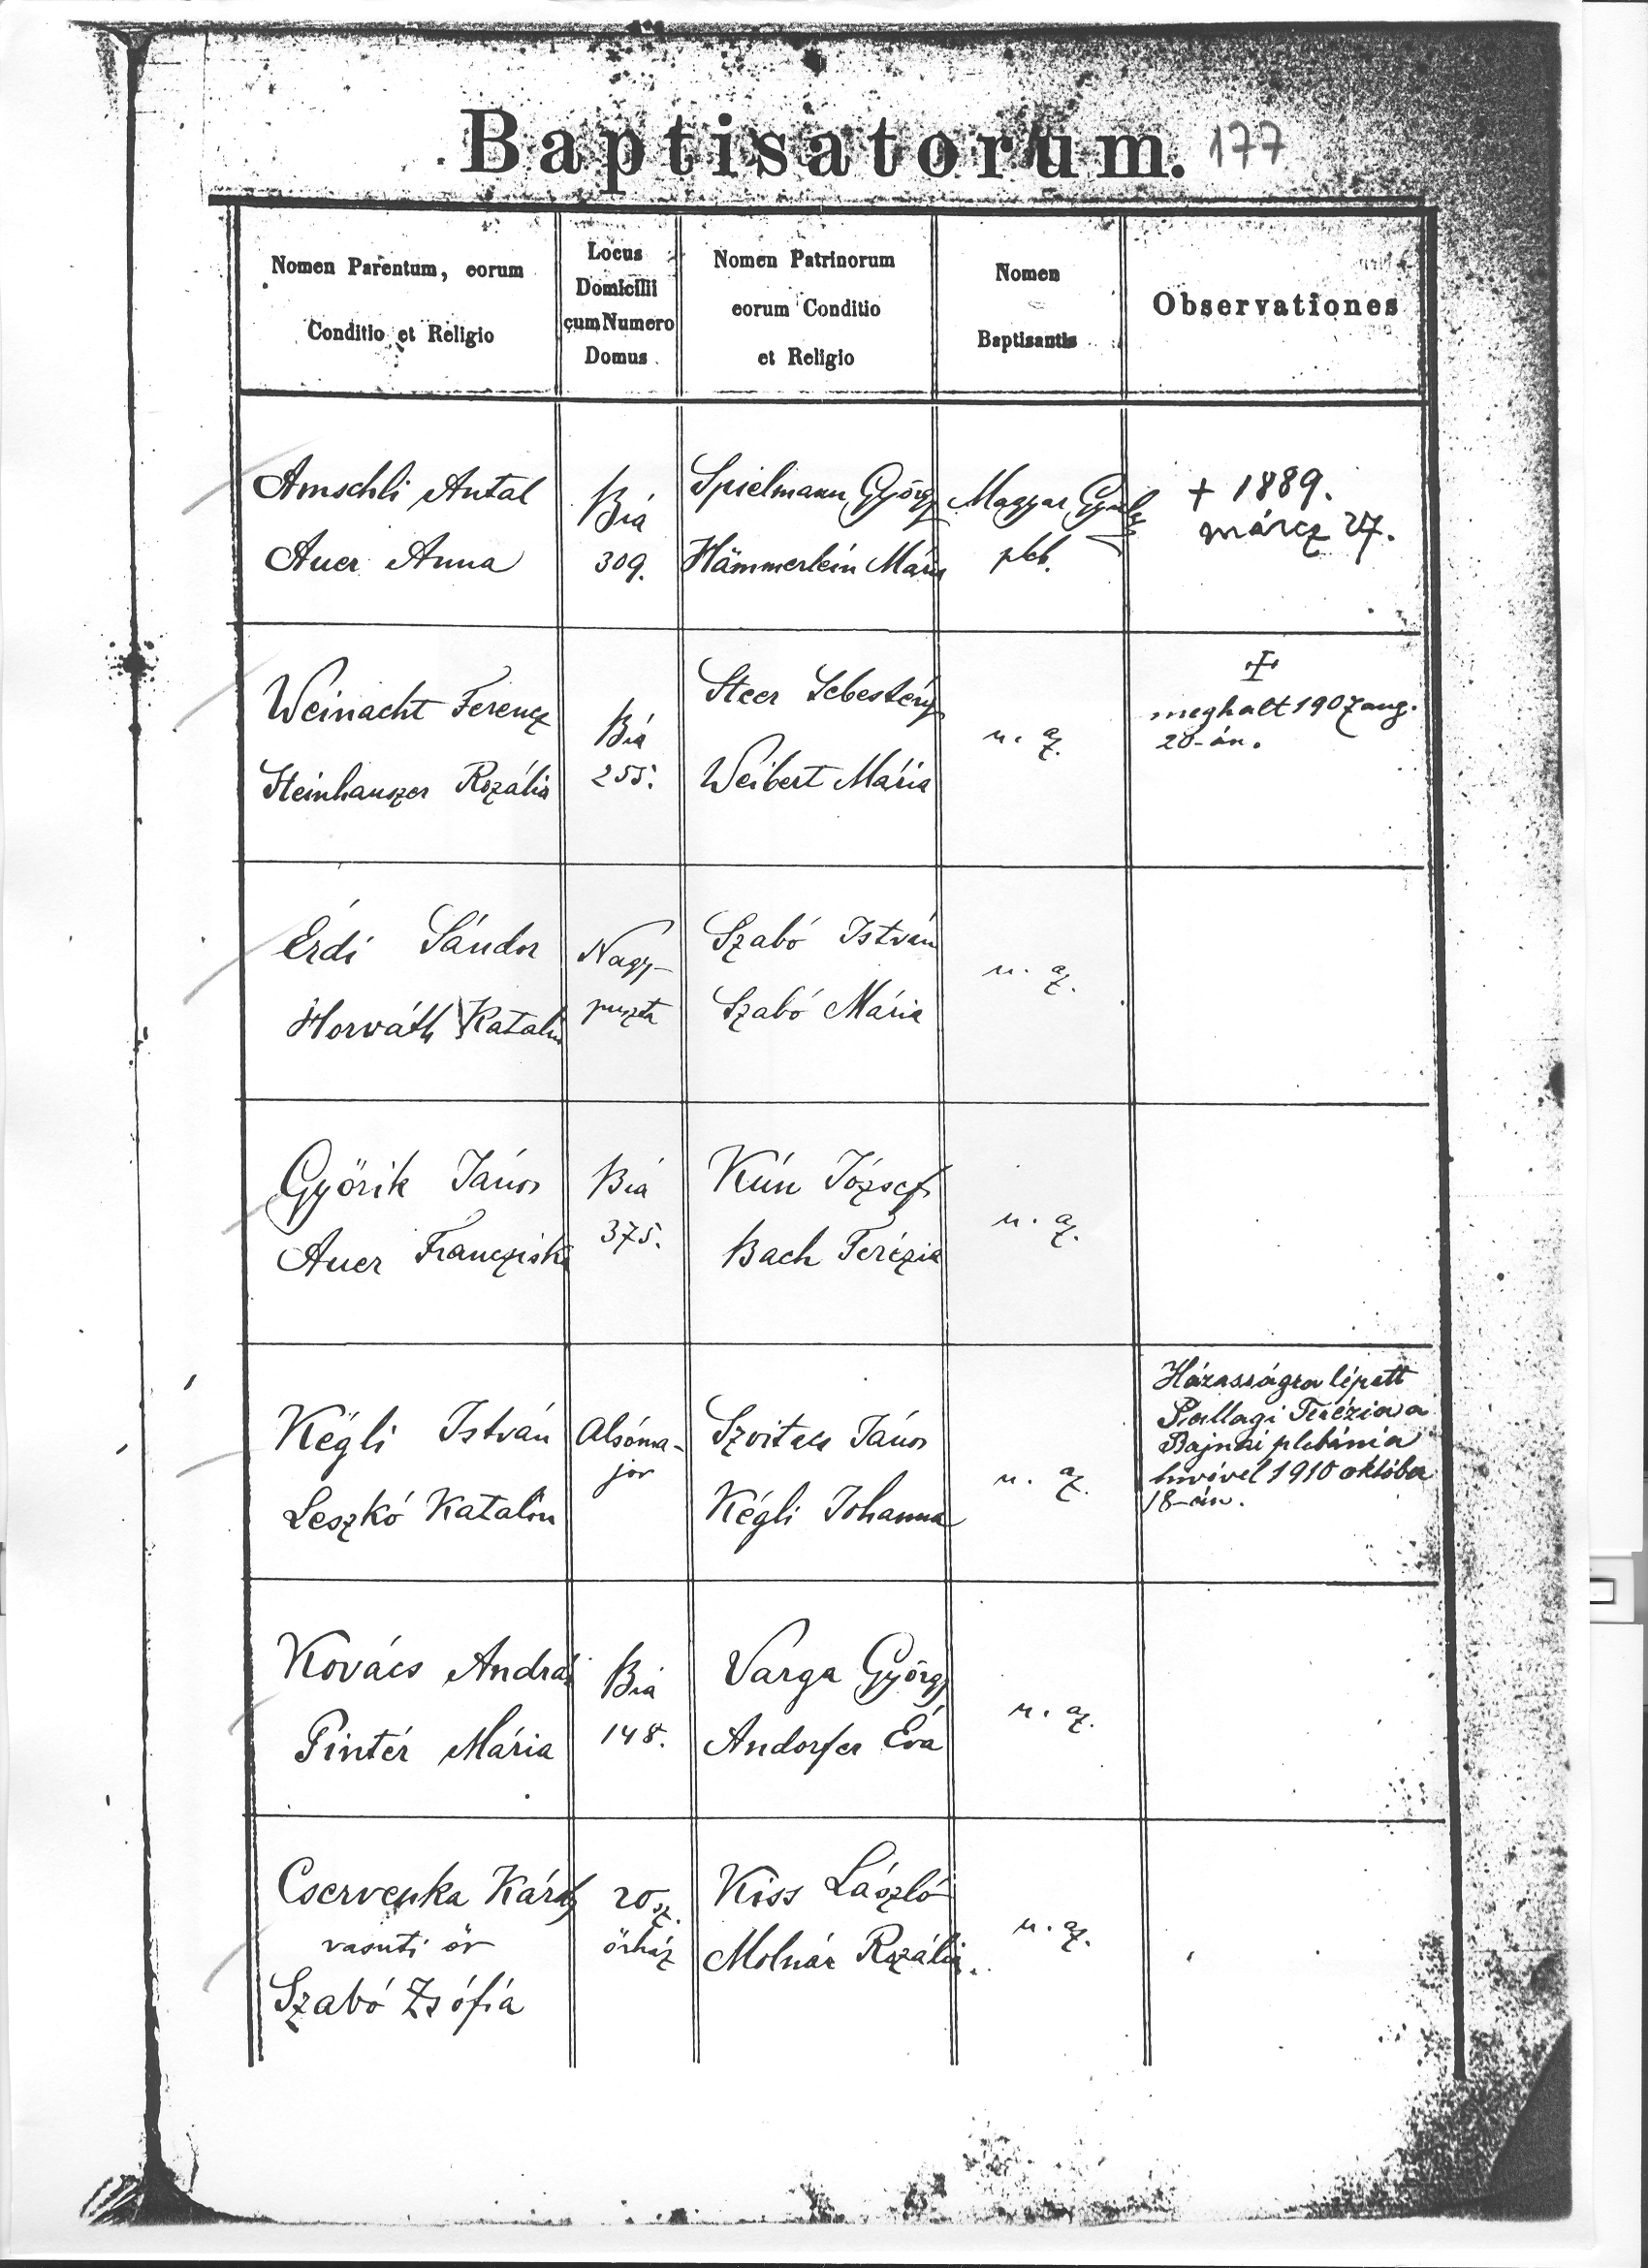 Baptisatorum. 177
Nomen Parentum, eorum
Conditio et Religio
Locus
Domicilii
cum Numero
Domus
Nomen Patrinorum
eorum Conditio
et Religio
Nomen
Baptisantis
Observationes
Amschli Antal
Auer Anna
Bia
309.
Spielmann György
Hämmerlein Mária
Magyar Gyula
plb.
+ 1889.
márcz 27.
Weinacht Ferencz
Steinhauszer Rozália
Bia
255.
Steer Sebestény
Weibert Mária
u. az.
meghalt 1907 aug.
20-án.
Érdi Sándor
Horváth Katalin
Nagy-
puszta
Szabó István
Szabó Mária
u. az.
Györik János
Auer Francziska
Bia
375.
Kún József
Bach Terézia
u. az.
Kégli István
Leszkó Katalin
Alsóma-
jor
Szvitek János
Kégli Johanna
u. az.
Házasságra lépett
Pallagi Terézia a
Bajnai plébánia
hivővel 1910 október
18-án.
Kovács András
Pintér Mária
Bia
148.
Varga György
Andorfer Éva
u. az.
Cservenka Károly
vasuti őr
Szabó Zsófia
20 sz.
őrház
Kiss László
Molnár Rozália.
u. az.